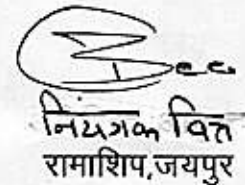 नियंत्रक वित्त
रामाशिप,जयपुर